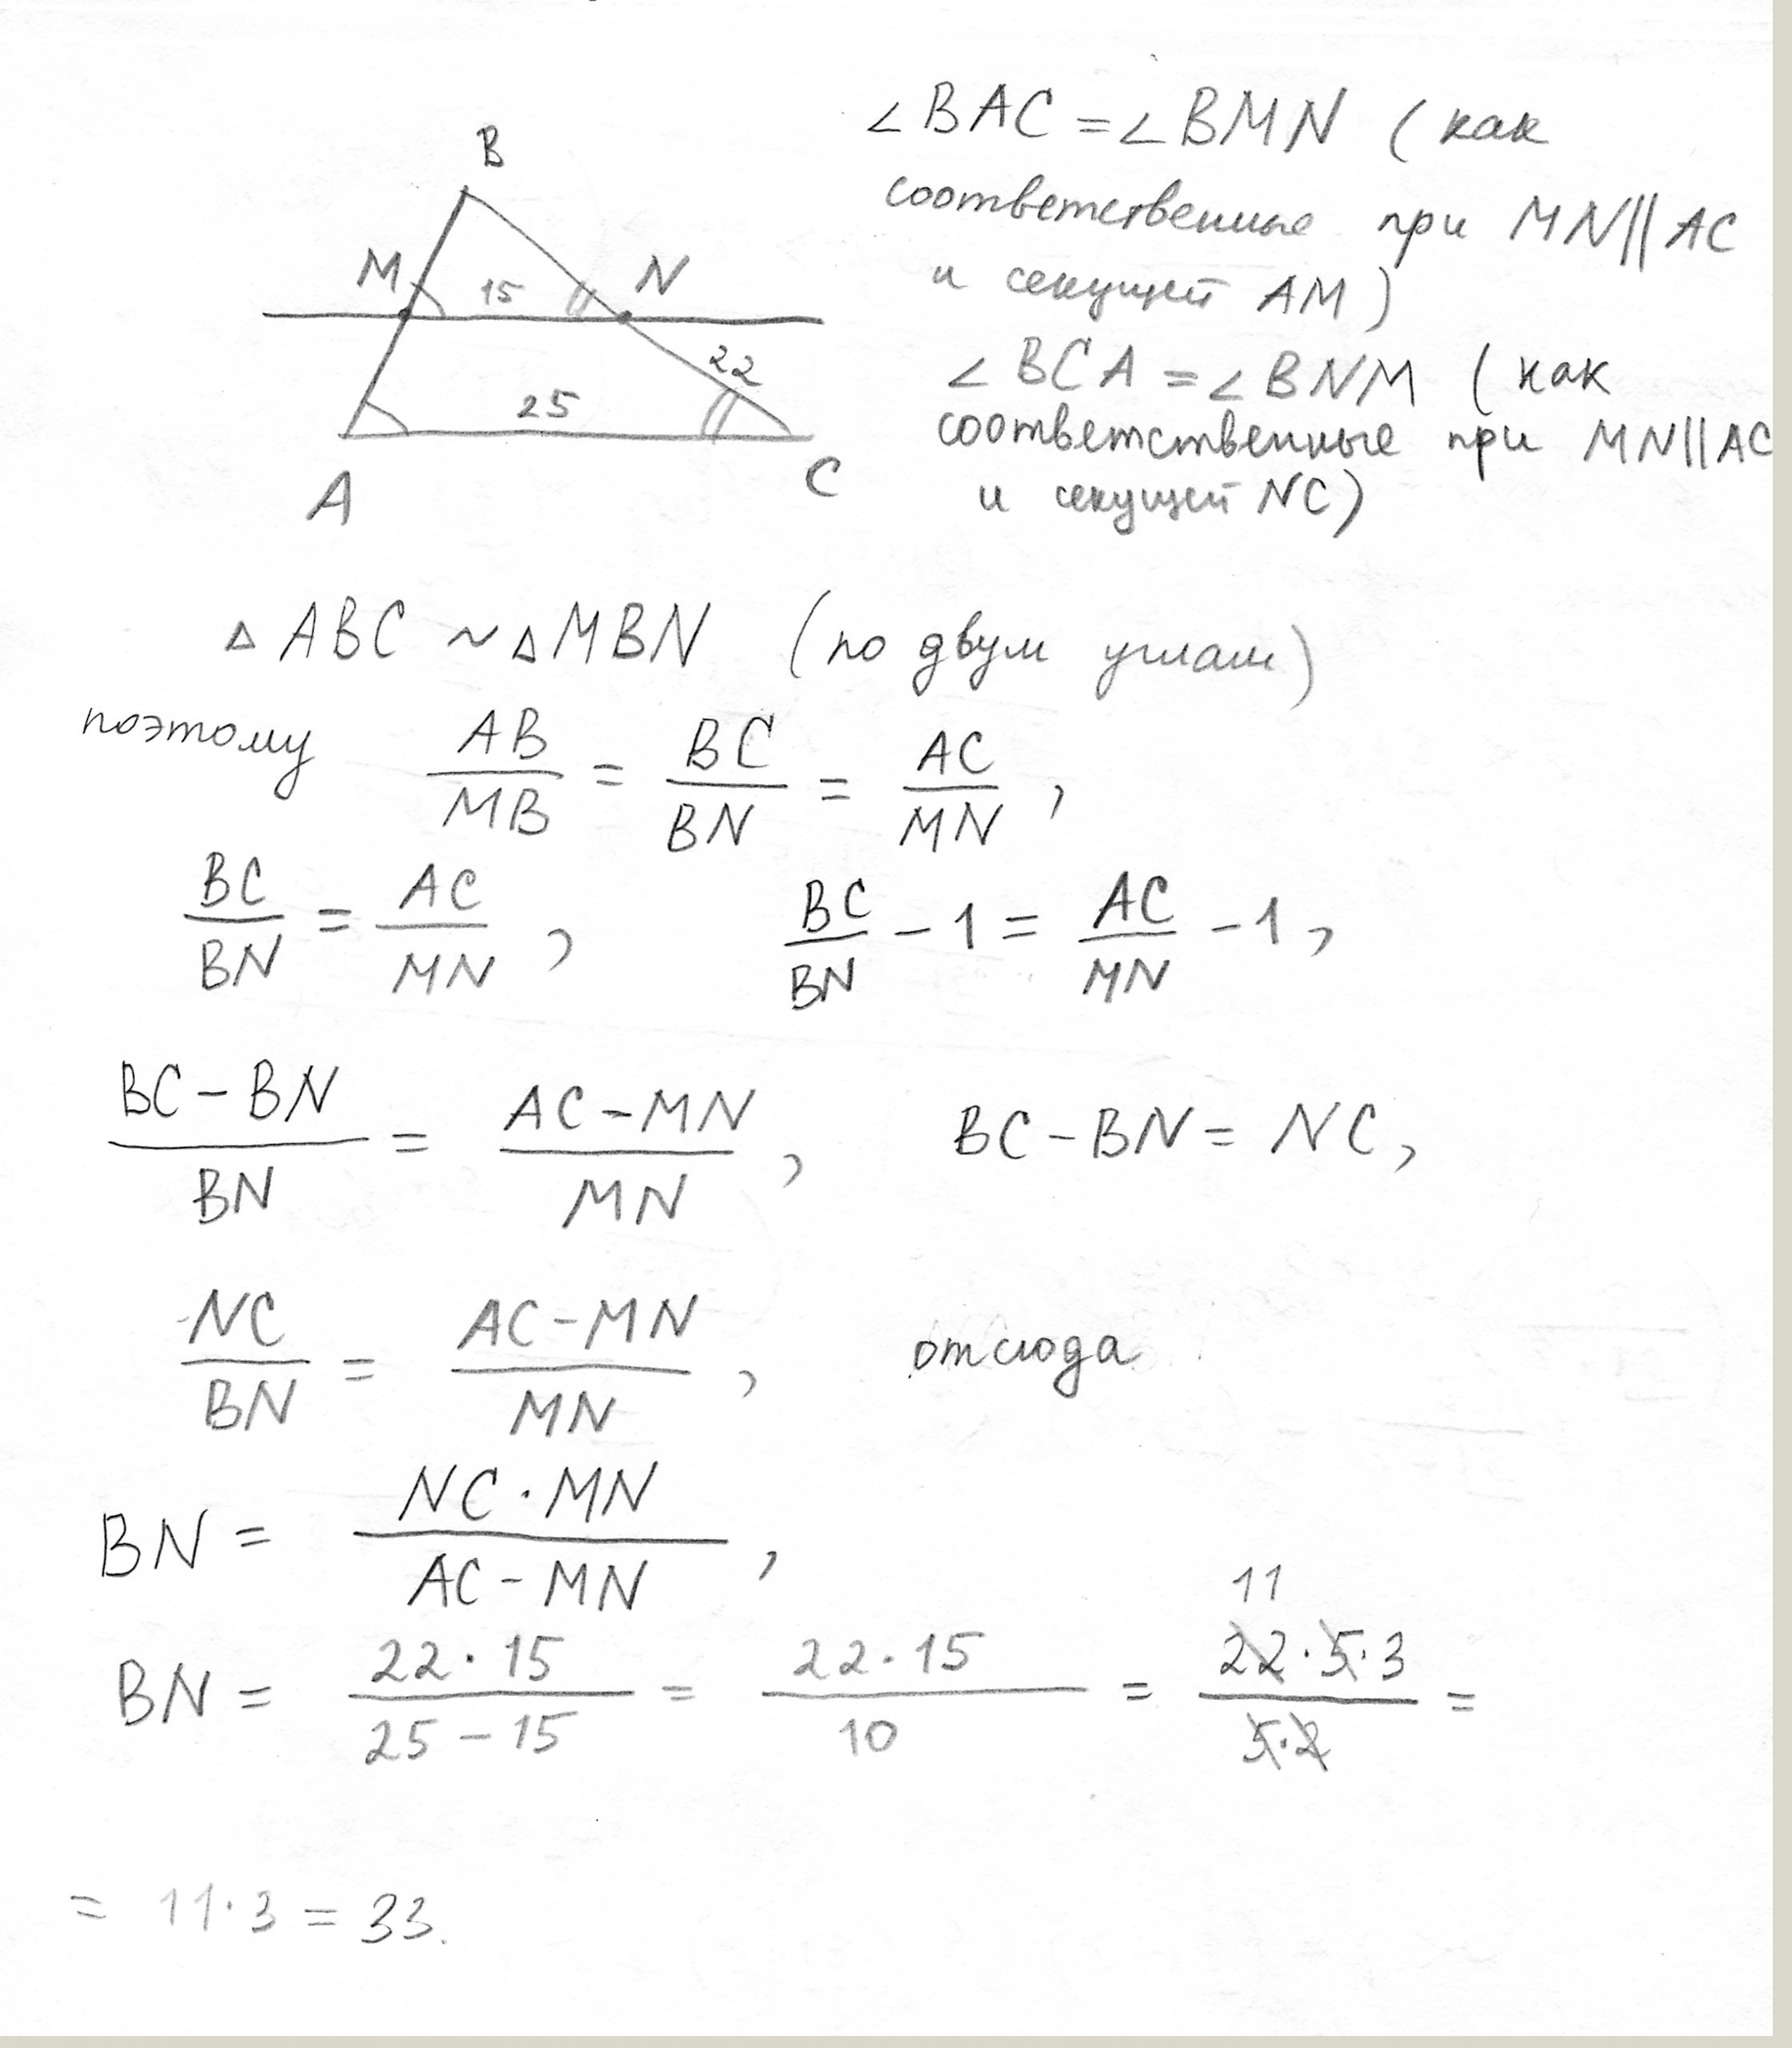 ∠BAC = ∠BMN (как
соответственные при MN || AC
и секущей AM)
∠BCA = ∠BNM (как
соответственные при MN || AC
и секущей NC)
B
M 15 N
22
25
A C
△ABC ~ △MBN (по двум углам)
поэтому AB/MB = BC/BN = AC/MN,
BC/BN = AC/MN, BC/BN - 1 = AC/MN - 1,
BC - BN/BN = AC - MN/MN, BC - BN = NC,
NC/BN = AC - MN/MN, отсюда
BN = NC · MN/AC - MN,
11
BN = 22 · 15/25 - 15 = 22 · 15/10 = 22 · 5 · 3/5 · 2 =
= 11 · 3 = 33.